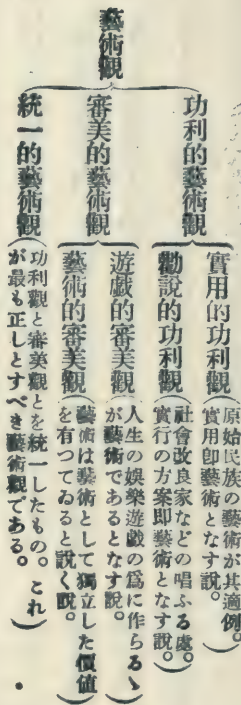 藝術觀
功利的藝術觀
實用的功利觀
原始民族の藝術が其適例。
實用卽藝術となす說。
勸說的功利觀
社會改良家などの唱ふる處。
實行の方案卽藝術となす說。
審美的藝術觀
遊戲的審美觀
人生の娛樂遊戲の爲に作らるゝ
が藝術であるとなす說。
藝術的審美觀
藝術は藝術として獨立した價値
を有つてゐると說く說。
統一的藝術觀
功利觀と審美觀とを統一したもの。これ
が最も正しとすべき藝術觀である。